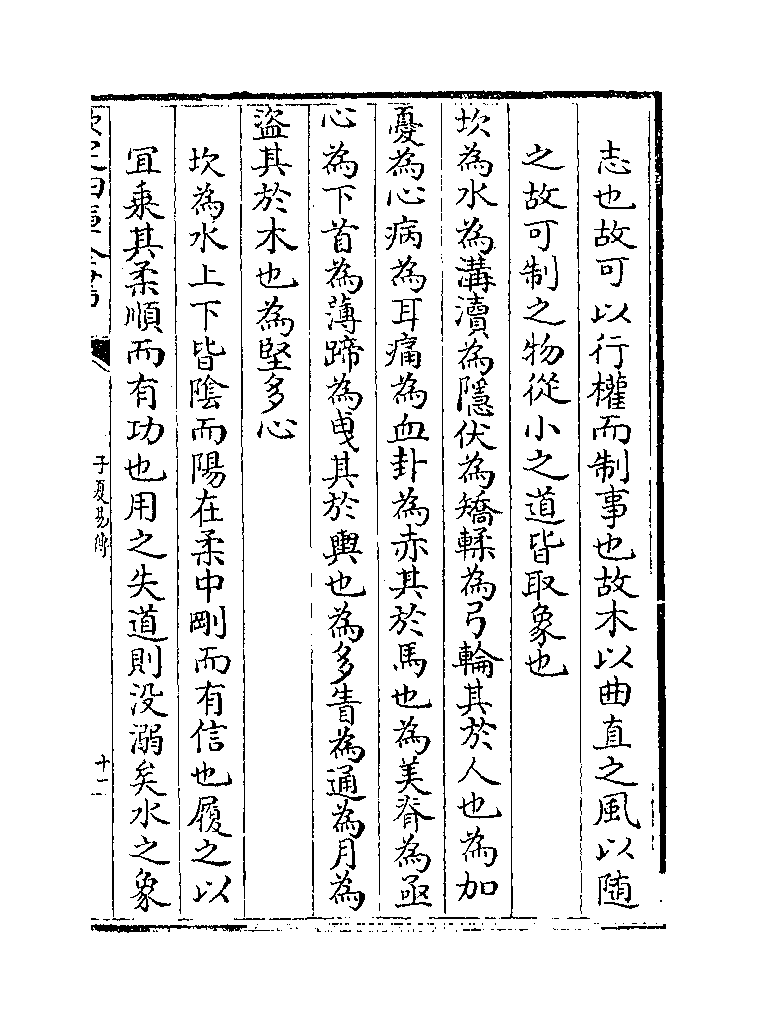 志也故可以行權而制事也故木以曲直之風以随
之故可制之物從小之道皆取象也
坎為水為溝瀆為隱伏為矯輮為弓輪其於人也為加
憂為心病為耳痛為血卦為赤其於馬也為美脊為亟
心為下首為薄蹄為曳其於輿也為多眚為通為月為
盜其於木也為堅多心
坎為水上下皆陰而陽在柔中剛而有信也履之以
宜乘其柔順而有功也用之失道則没溺矣水之象
子夏易傳
十一